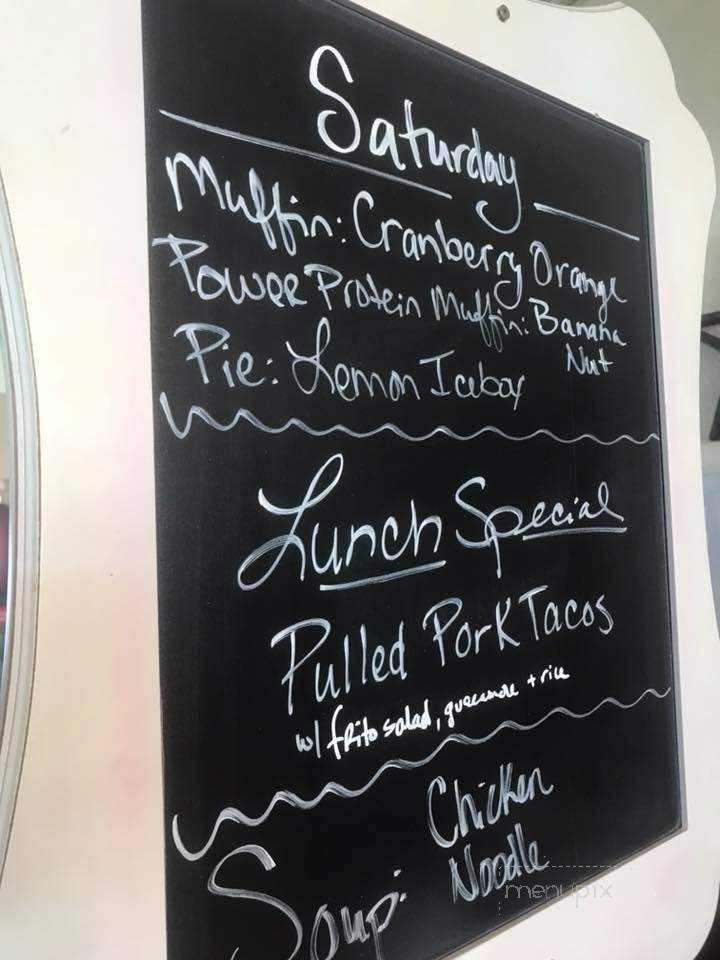 Saturday
Muffin: Cranberry Orange
Power Protein Muffin: Banana
Nut
Pie: Lemon Icebox
Lunch Special
Pulled Pork Tacos
w/ frito salad, guacamole + rice
Chicken
Soup: Noodle
menupix